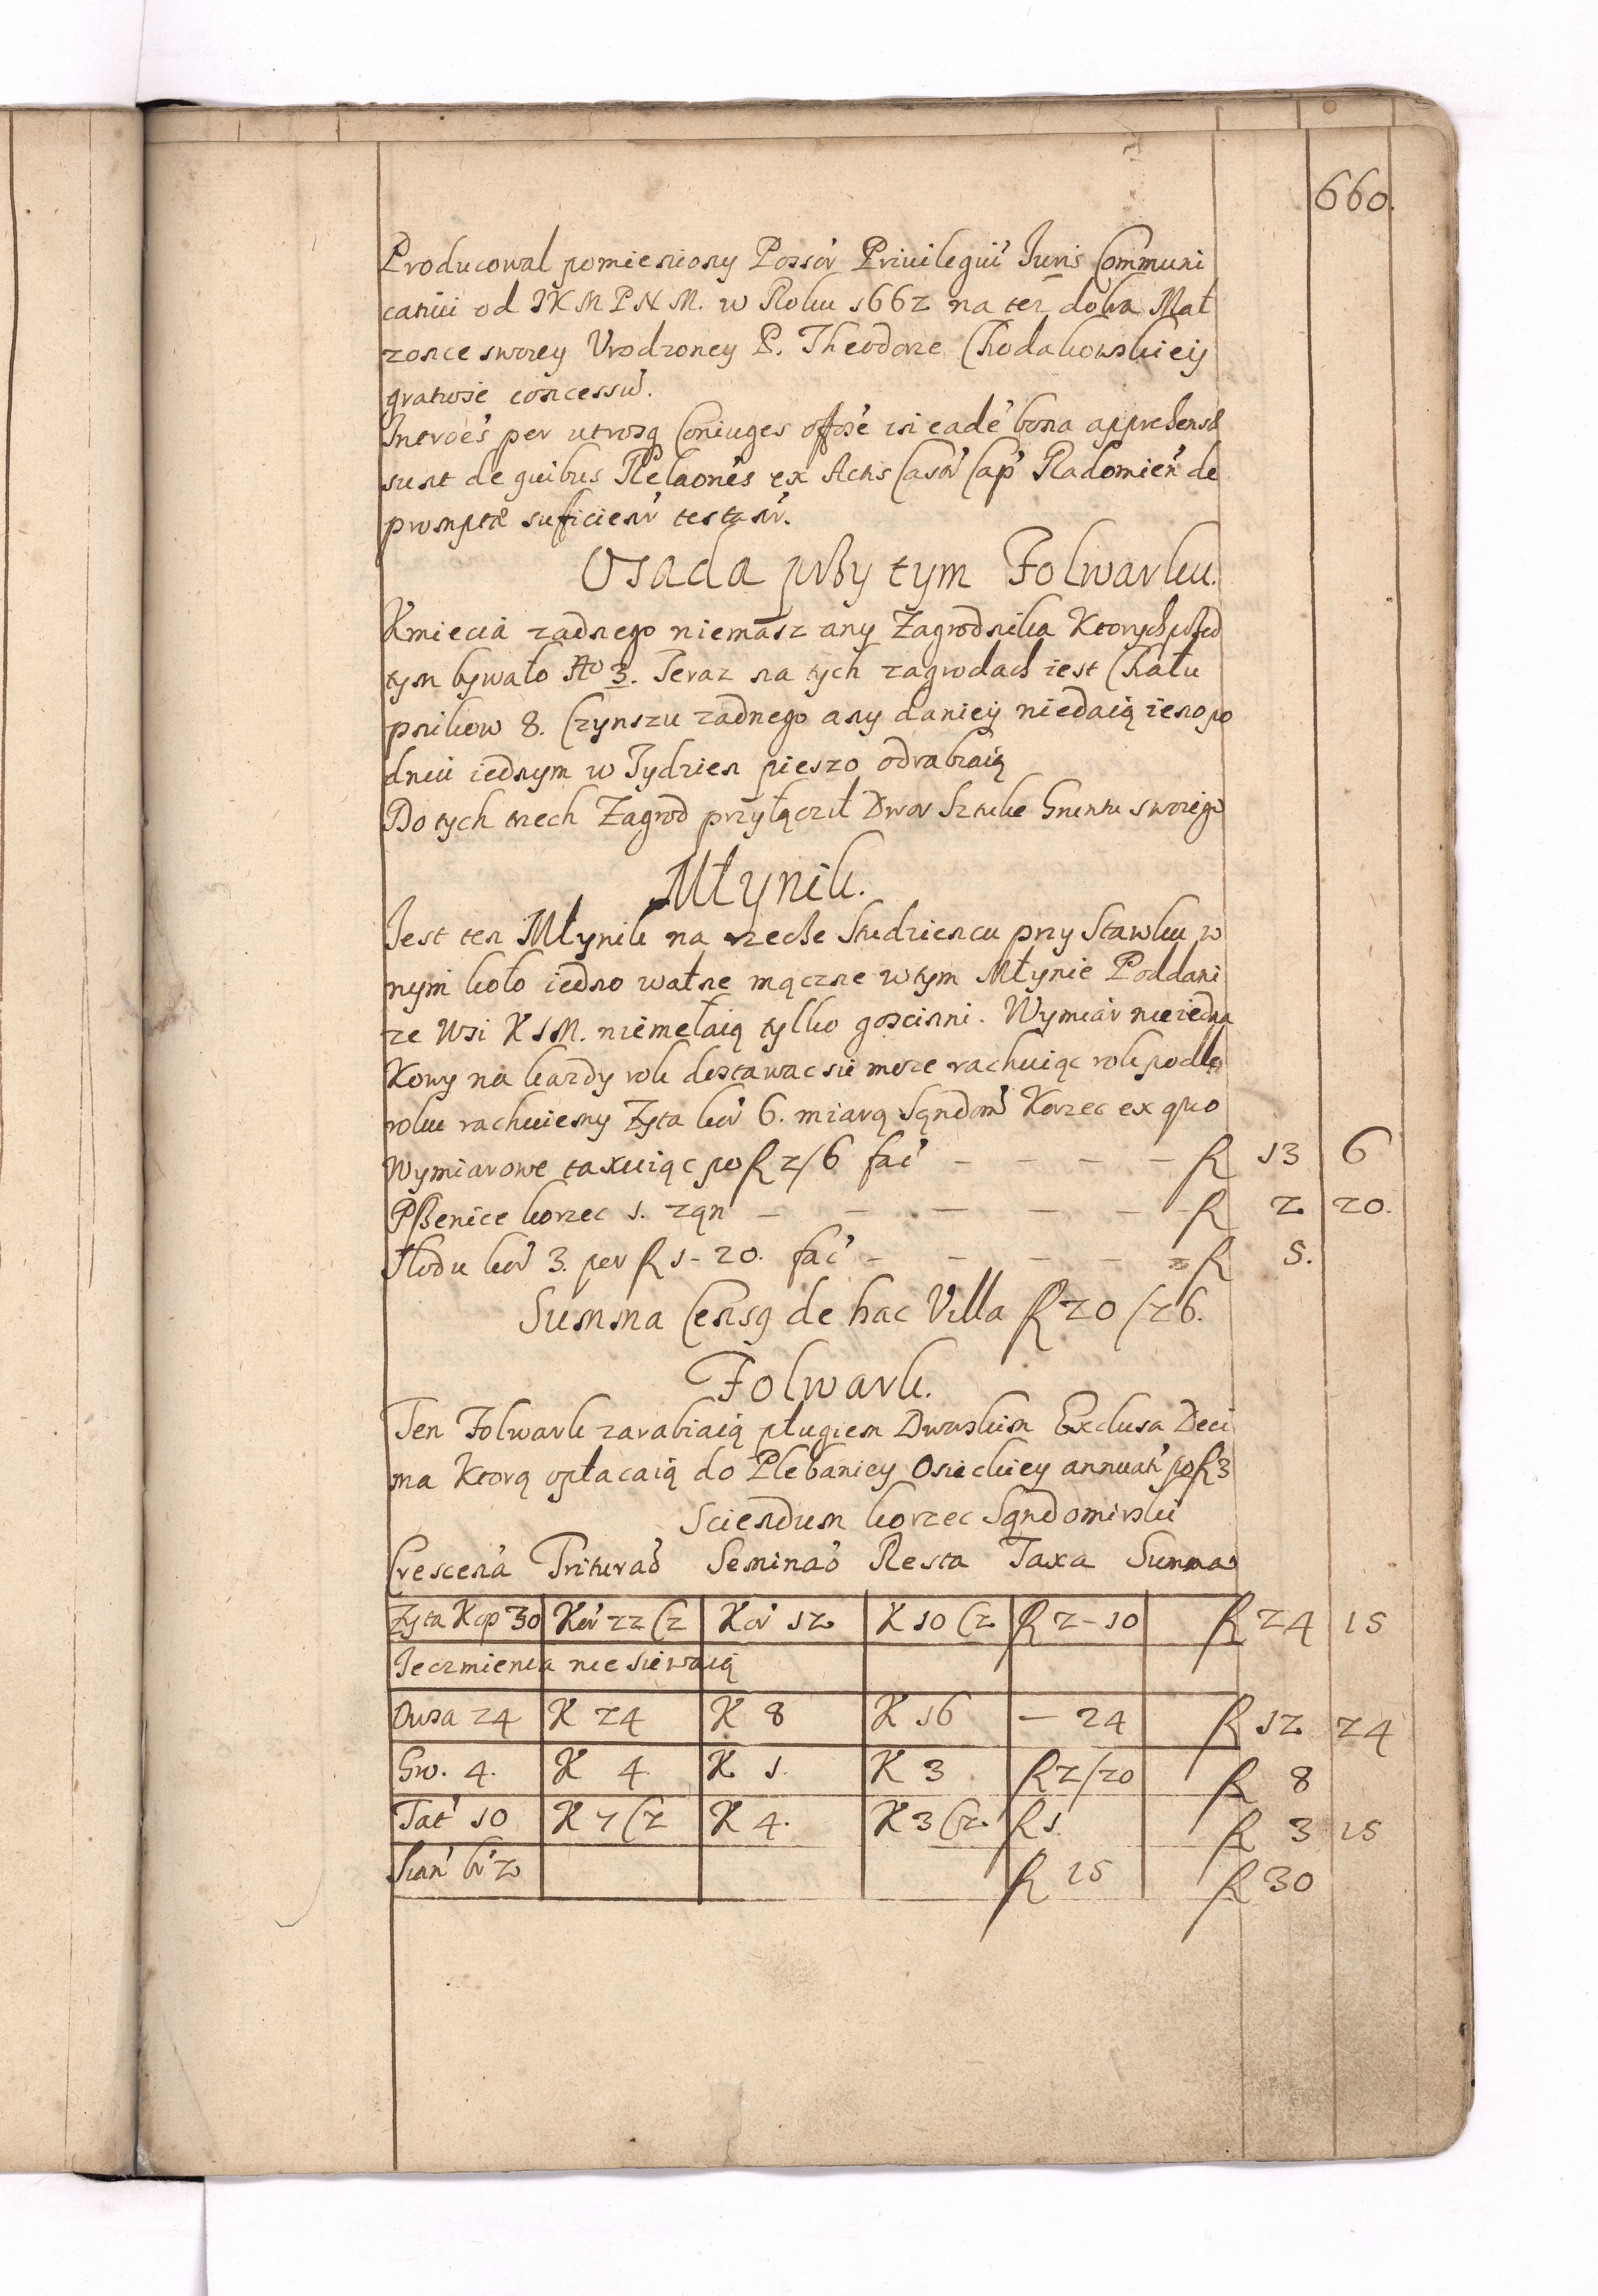 660.
Producowal pomieniony Possór Priuilegiu' Iuris Communi
catiui od IKMPNM. w Roku 1662 na też dobra Mał
zonce swoiey Vrodzoney P. Theodorze Chodakowskieÿ
gratiose concessu'.
Introes' per utrosq Coniuges offose' in eade' bona apprehensæ
sunt de quibus Relaones' ex Actis Casør' Cap' Radomień de
promptæ suficienr' testanr'.
Osada przy tym Folwarku.
Kmiecia zadnego niemasz any Zagrodnika Ktorych przed
tym bywało No 3. Teraz na tych zagrodach iest Chału
pnikow 8. Czynszu zadnego any daniey niedaią ieno po
dniu iednym w Tydzien pieszo odrabiaią
Do tych trzech Zagrod przyłączył Dwor Sztuke Gruntu swoiego
Młynik.
Jest ten Młynik na rzeczce Studziencu przy Stawku w
nym koło iedno walne mączne w tym Młynie Poddani
ze Wsi KIM. niemełaią tylko goscinni. Wymiar nieiedna
Kowy na kazdy rok dostawac sie moze rachuiąc rok podle
roku rachuiemy Zyta kor' 6. miarą Sąndom' Korzec ex quo
Wymiarowe taxuiąc po fl 2/6 faci' - - - - fl 13 6
Pszenice korzec 1. zqn - - - - - fl 2 20.
Słodu kor' 3. per fl 1-20. faci' - - - - fl 5.
Summa Censq de hac Villa fl 20/26.
Folwark.
Ten Folwark zarabiaią pługiem Dworskim Exclusa Deci
ma Ktorą opłacaią do Plebaniey Osieckiey annuati' po fl 3
Sciendum korzec Sąndomirski
Crescen'a Triturao' Seminao' Resta Taxa Summa
Zyta Kop 30 Kor' 22 (2 Kor' 12 K 10 (2 fl 2-10 fl 24 15
Jeczmienia nie siewaią
Owsa 24 K 24 K 8 K 16 - 24 fl 12 24
Gro. 4. K 4 K 1. K 3 fl 2/20 fl 8
Tat' 10 K 7 (2 K 4. K 3 (2. fl 1. fl 3 15
Sian' br' 2 fl 15 fl 30